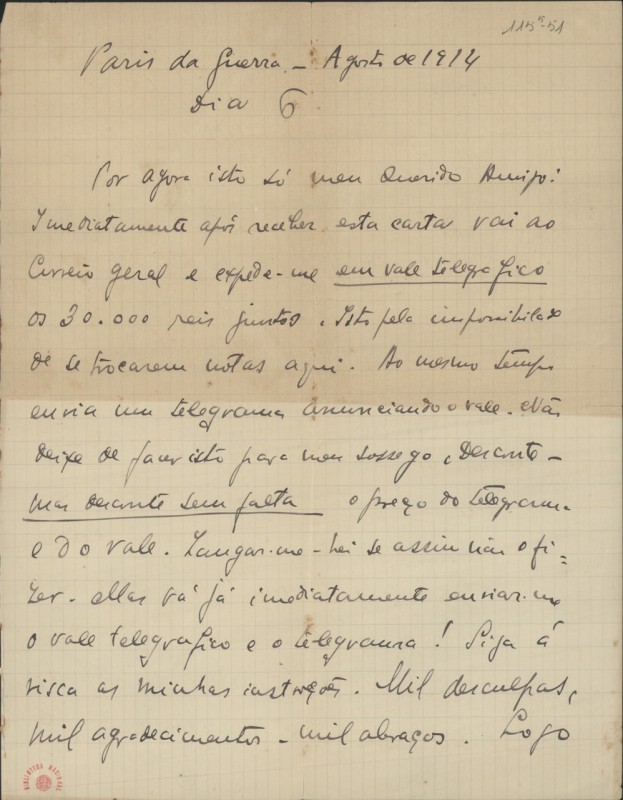 115⁵-51
Paris da Guerra - Agosto de 1914
Dia 6
Por agora isto só meu Querido Amigo:
Imediatamente após receber esta carta vai ao
Correio geral e expede-me em vale telegrafico
os 30.000 reis juntos. Isto pela impossibilida
de de se trocarem notas aqui. Ao mesmo tempo
envia um telegrama anunciando o vale. Não
deixe de fazer isto para meu sossego, desconte-
mas desconte sem falta o preço do telegrama
e do vale. Zangar-me-hei se assim não o fi-
zer. Mas vá já imediatamente enviar-me
o vale telegrafico e o telegrama! Siga á
risca as minhas instruções. Mil desculpas,
mil agradecimentos - mil abraços. Logo
BIBLIOTECA NACIONAL